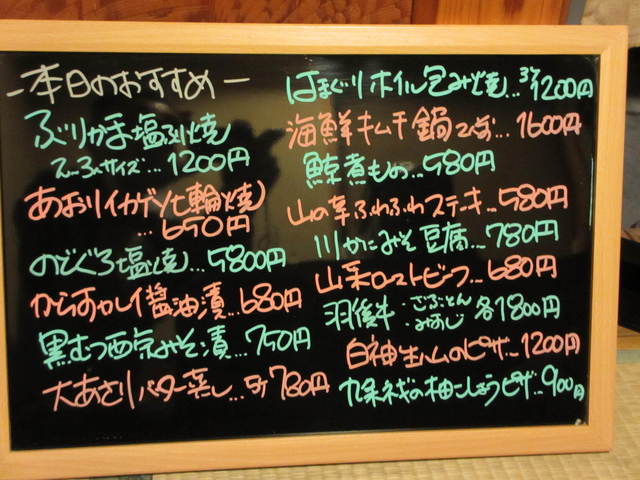 ー本日のおすすめー
ぶりかま塩ふり焼
えーろぉサイズ…1200円
あおりイカゲソ七輪焼
…650円
のどぐろ塩焼…5800円
からすカレイ醤油漬…680円
黒むつ西京みそ漬…750円
大あさりバター蒸し…5ケ780円
はまぐりホイル包み焼…3ケ1200円
海鮮キムチ鍋…1600円
鯨煮もの…580円
山の芋ふわふわステーキ…580円
川かにみそ豆腐…780円
山采ローストビーフ…680円
羽後牛・ざぶとん 各1800円
・みすじ
白神生ハムのピザ…1200円
九条ネギの柚こしょうピザ…900円